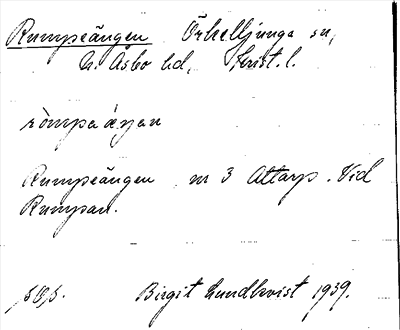 Rumpeängen Örkelljunga sn,
N. Åsbo hd, Krist. l.
ròmpeáŋan
Rumpeängen m 3 Attarp. Vid
Rumpan.
Birgit Lundkvist 1939.